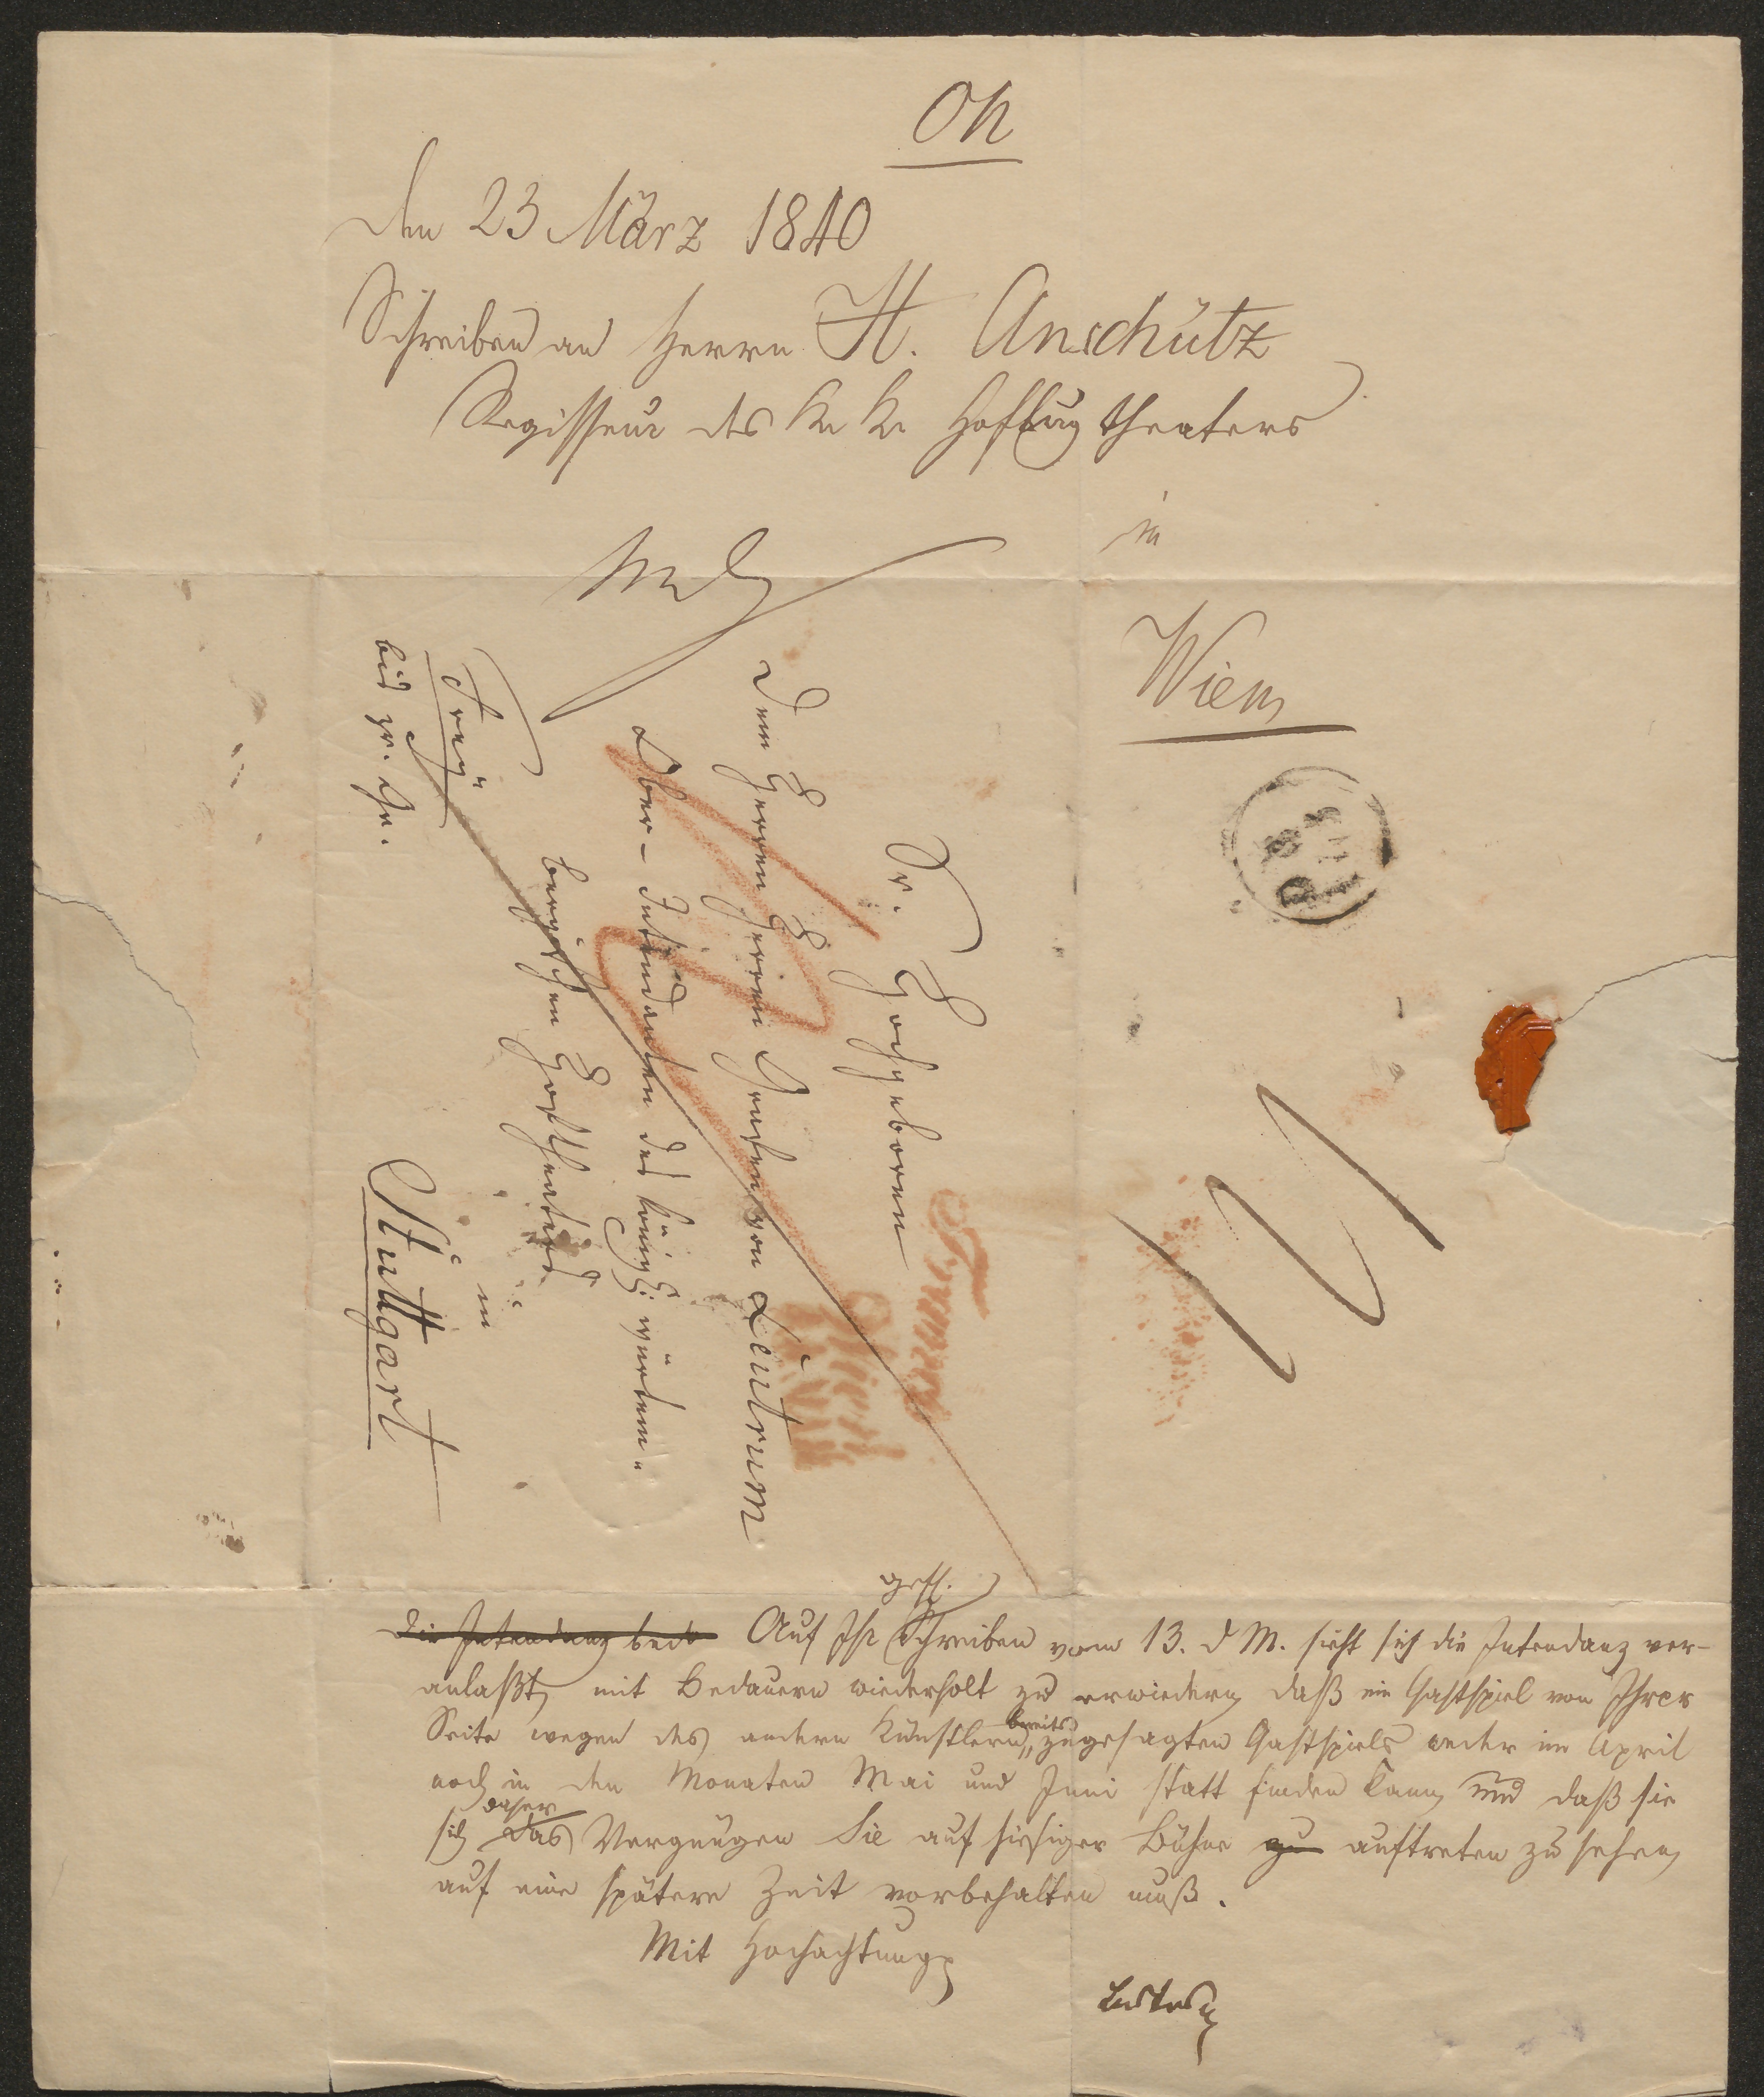 den 23 März 1840
Schreiben an Herrn H. Anschütz
Regisseur des K. K. Hofburgtheaters
in
Wien
Sr. Hochgeboren
Dem Herren Herren Grafen von Leutrum
Ober-Intendanten des königl: würtem-
bergischen Hoftheaters
in
Stuttgart
Frey
bis zr. Gr.
gefl.
Die Intendanz bed Auf Ihr Schreiben vom 13. d M. sieht sich die Intendanz ver-
anlaßt, mit Bedauern wiederholt zu erwiedern daß ein Gastspiel von Ihrer
Seite wegen des andern Künstlern bereits zugesagten Gastspiels weder im April
noch in den Monaten Mai und Juni statt finden kann und daß sie
sich daher das Vergnügen Sie auf hiesiger Bühne zu auftreten zu sehen,
auf eine spätere Zeit vorbehalten muß.
Mit Hochachtung